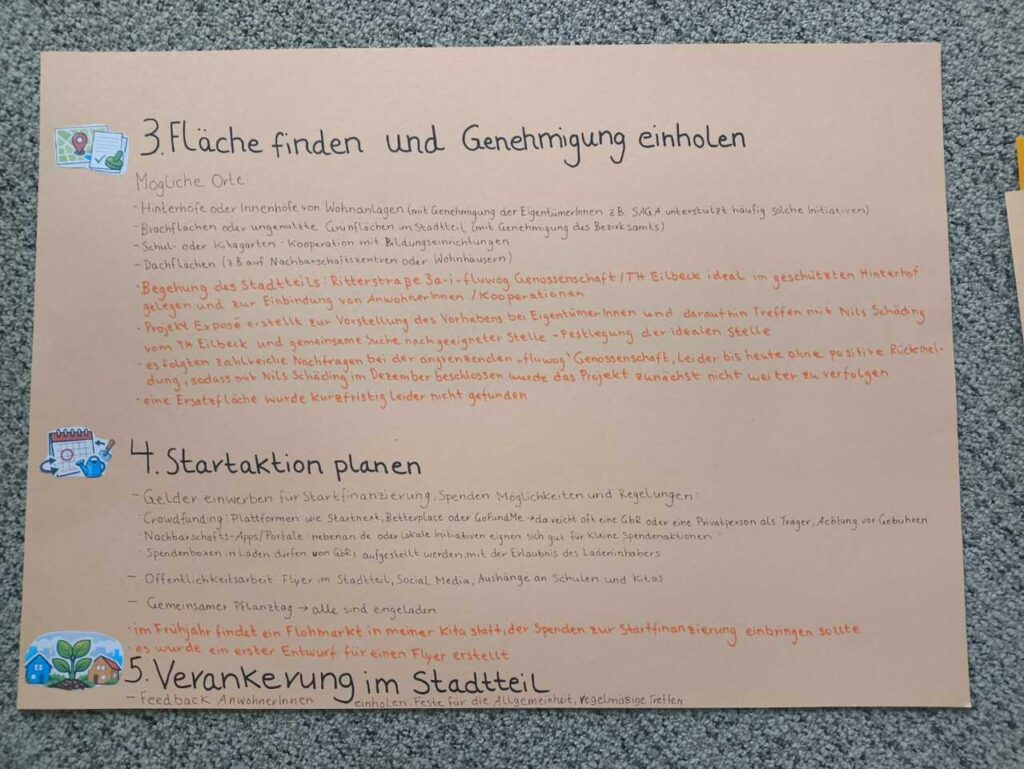 3. Fläche finden und Genehmigung einholen
Mögliche Orte:
- Hinterhöfe oder Innenhöfe von Wohnanlagen (mit Genehmigung der EigentümerInnen z.B. SAGA unterstützt häufig solche Initiativen)
- Brachflächen oder ungenutzte Grünflächen im Stadtteil (mit Genehmigung des Bezirksamts)
- Schul- oder Kitagärten - Kooperation mit Bildungseinrichtungen
- Dachflächen (z.B. auf Nachbarschaftszentren oder Wohnhäusern)
· Begehung des Stadtteils: Ritterstraße 3a-i-fluwog Genossenschaft/TH Eilbeck ideal im geschützten Hinterhof
gelegen und zur Einbindung von AnwohnerInnen /Kooperationen
· Projekt Exposé erstellt zur Vorstellung des Vorhabens bei EigentümerInnen und daraufhin Treffen mit Nils Schäding
vom TH Eilbeck und gemeinsame Suche nach geeigneter Stelle - Festlegung der idealen Stelle
· es folgten zahlreiche Nachfragen bei der angrenzenden „fluwog" Genossenschaft, leider bis heute ohne positive Rückmel-
dung, sodass mit Nils Schäding im Dezember beschlossen wurde das Projekt zunächst nicht weiter zu verfolgen
· eine Ersatzfläche wurde kurzfristig leider nicht gefunden
4. Startaktion planen
- Gelder einwerben für Startfinanzierung, Spenden Möglichkeiten und Regelungen:
· Crowdfunding: Plattformen wie Startnext, Betterplace oder GoFundMe → da reicht oft eine GbR oder eine Privatperson als Träger, Achtung vor Gebühren
· Nachbarschafts-Apps/Portale nebenan.de oder lokale Initiativen eignen sich gut für kleine Spendenaktionen
· Spendenboxen in Läden dürfen von GbRs aufgestellt werden, mit der Erlaubnis des Ladeninhabers
- Öffentlichkeitsarbeit Flyer im Stadtteil, Social Media, Aushänge an Schulen und Kitas
- Gemeinsamer Pflanztag → alle sind eingeladen
· im Frühjahr findet ein Flohmarkt in meiner Kita statt, der Spenden zur Startfinanzierung einbringen sollte
· es wurde ein erster Entwurf für einen Flyer erstellt
5. Verankerung im Stadtteil
- Feedback AnwohnerInnen einholen, Feste für die Allgemeinheit, regelmäßige Treffen